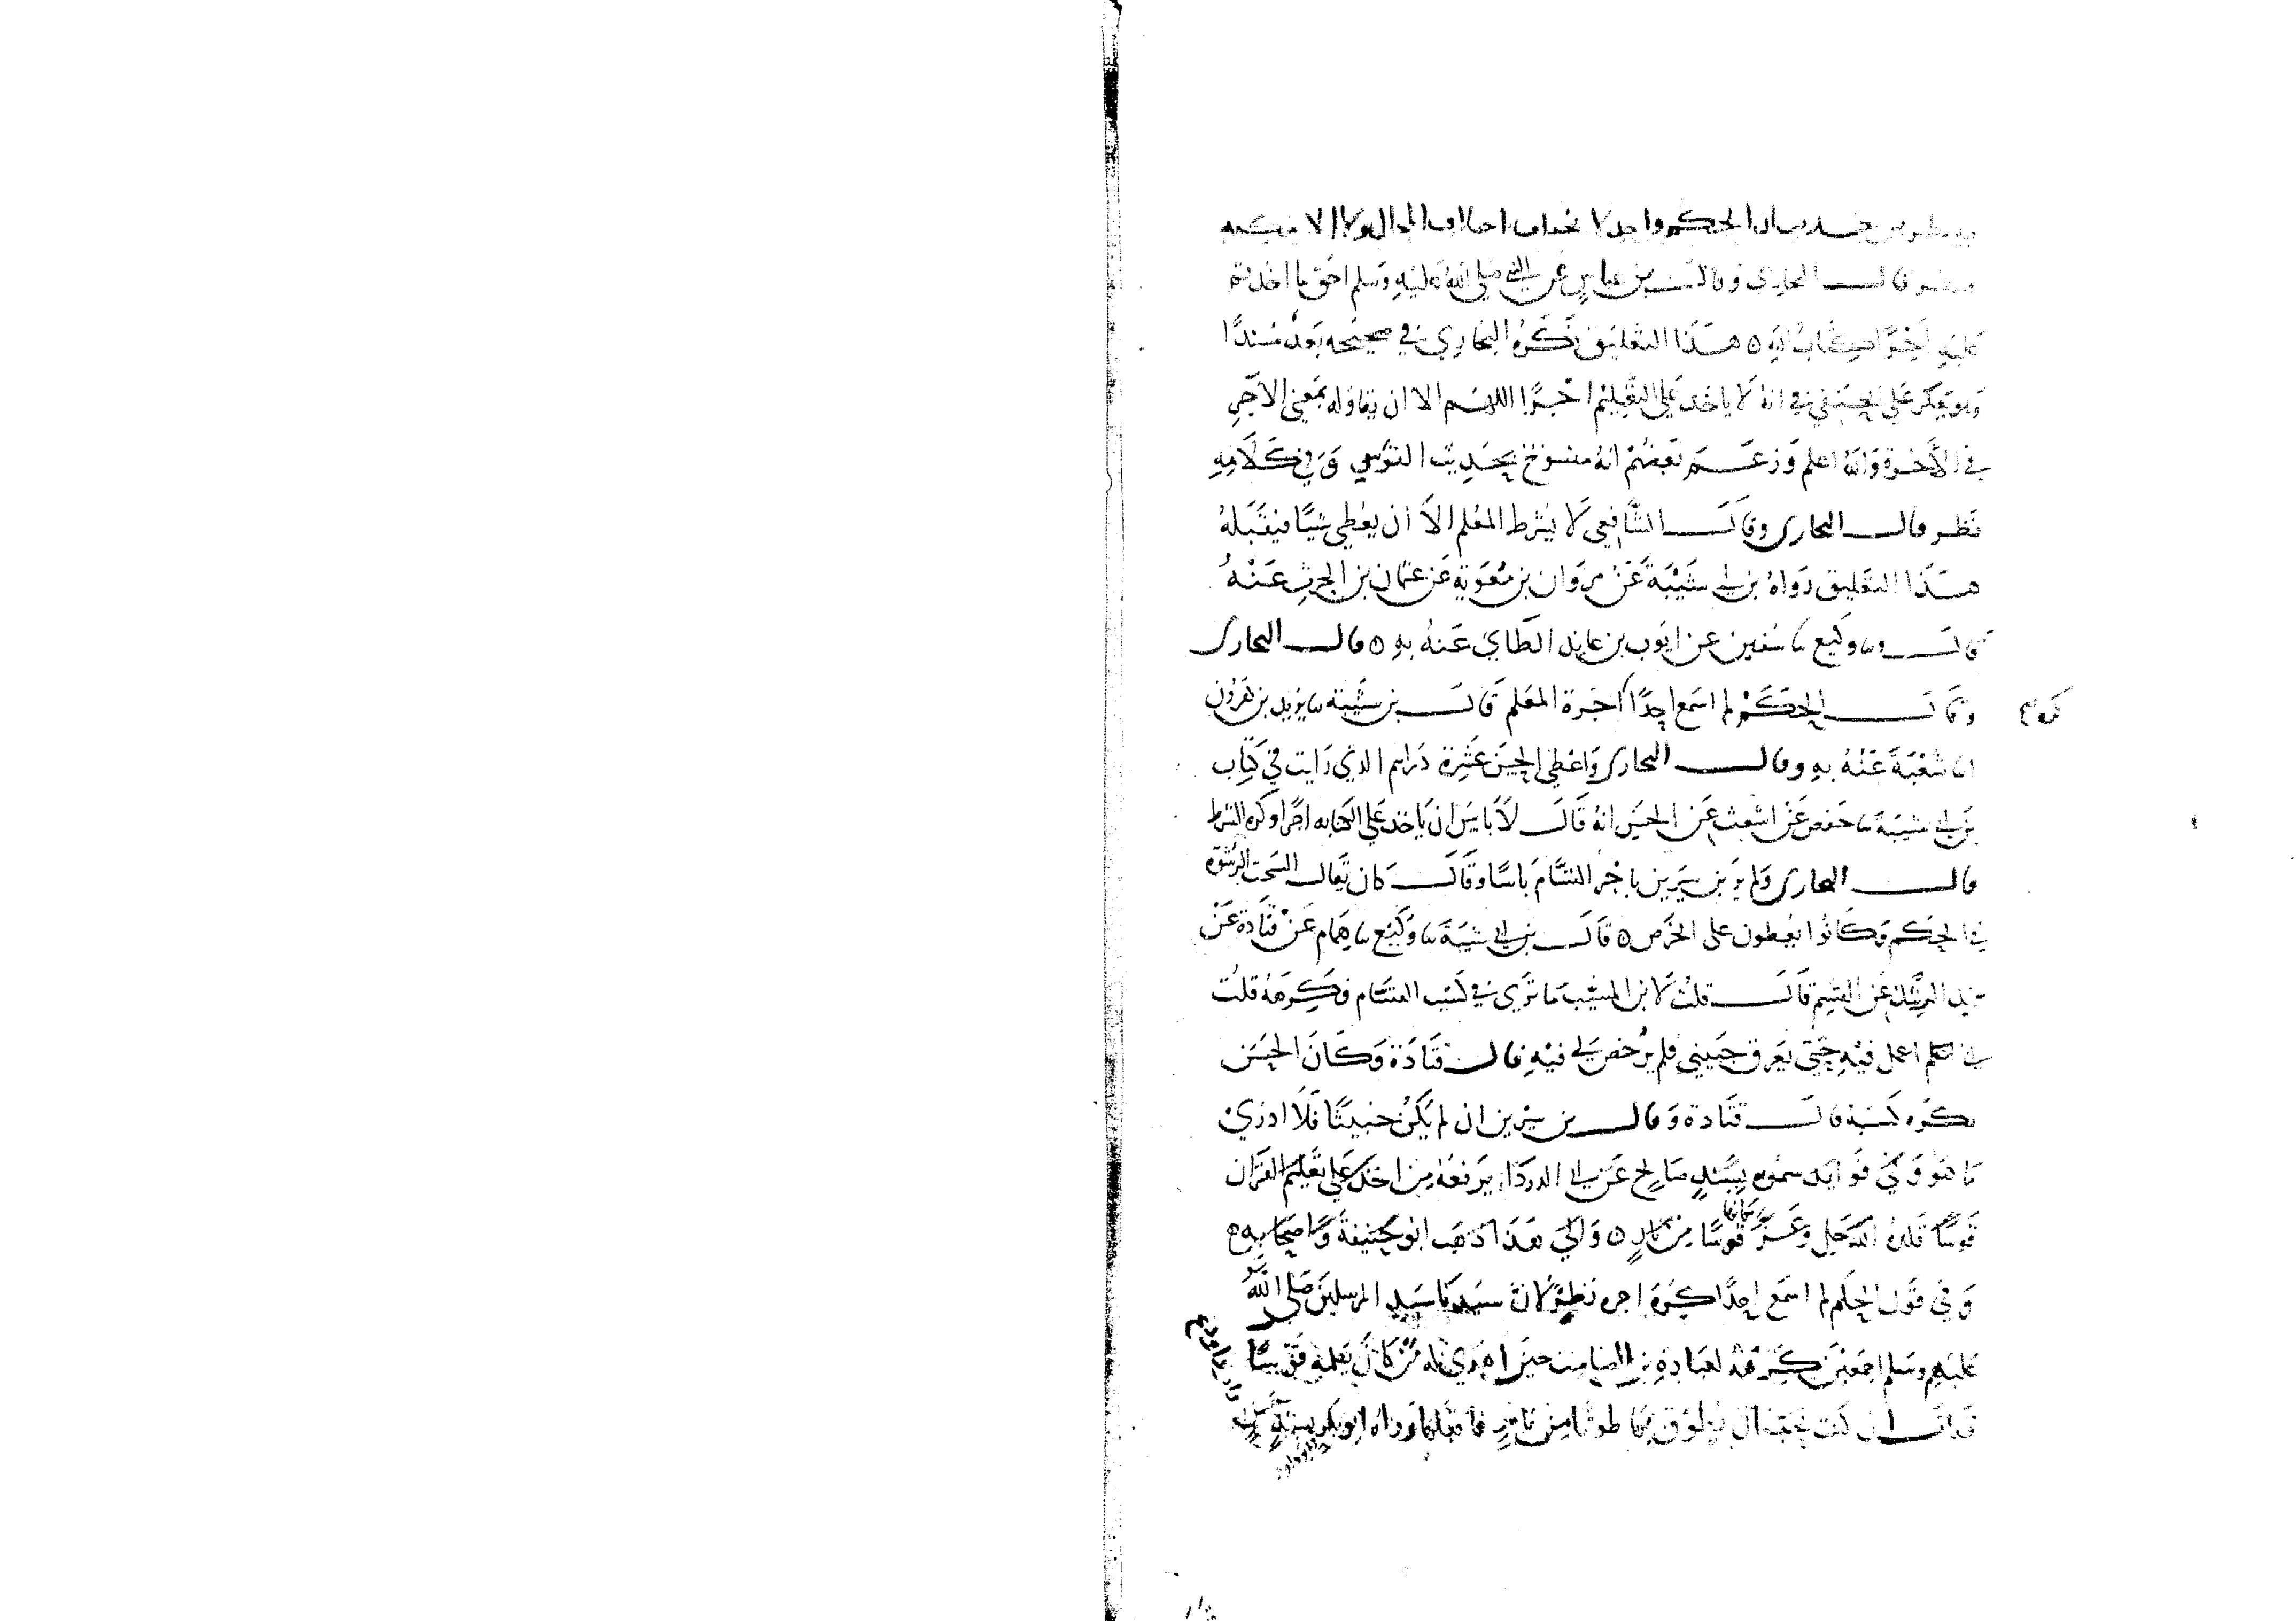 الحكم واحد لا يختلف اختلاف المحال ولا الا مكنه
قال البخاري وقال بن عباس عن النبي صلى الله عليه وسلم احق ما اخذتم
عليه اجرا كتاب الله ه هذا التعليق ذكره البخاري في صحيحه بعد مسندا
وهو يعكر على الحنفي في انه لا ياخذ على التعليم اجرا اللهم الا ان يقاوله بمعنى الاجر
في الاخرة والله اعلم وزعم بعضهم انه منسوخ بحديث القوس وفي كلامه
نظر قال البخاري وقال الشافعي لا يشرط المعلم الا ان يعطى شيا فيقبله
هذا التعليق رواه بن ابي شيبة عن مروان بن معوية عن عثمان بن الحرث عنه
قال وسا وكيع سا سفين عن ايوب بن عايد الطاي عنه به ه قال البخاري
وقال الحكم لم اسمع احدا اجرة المعلم قال بن شيبة سا يزيد بن هرون
انا شعبة عنه به وقال البخاري واعطى الحسن عشرة دراهم الذي رايت في كتاب
بن ابي شيبة سا حفص عن اشعث عن الحسن انه قال لا باس ان ياخذ على الكتابه اجرا وكره الشرط
قال البخاري ولم ير بن سيرين باجر القسام باسا وقال كان يقال السحت الرشوة
في الحكم وكانوا يعطون على الخرص ه قال بن ابي شيبة سا وكيع سا همام عن قتادة عن
يزيد الرشك عن القسم قال قلت لابن المسيب ما ترى في كسب القسام فكرهه قلت
اني اعمل فيه حتى يعرق جبيني فلم يرخص لي فيه قال قتادة وكان الحسن
يكره كسبه قال قتادة وقال بن سيرين ان لم يكن خبيثا فلا ادري
ما هو وفي فوايد سمويه بسند صالح عن ابي الدردا يرفعه من اخذ على تعليم القران
قوسا قلده الله جل وعز مكانها قوسا من نار ه والى هذا ذهب ابو حنيفة واصحابه
وفي قول الحكم لم اسمع احدا كره اجره نظر لان سيدنا سيد المرسلين صلى الله
عليه وسلم اجمعين كرهه لعبادة بن الصامت حين اهدى له من كان يعلمه قوسا
قال ان كنت تحب ان تطوق بها طوقا من نار فاقبلها رواه ابو داود